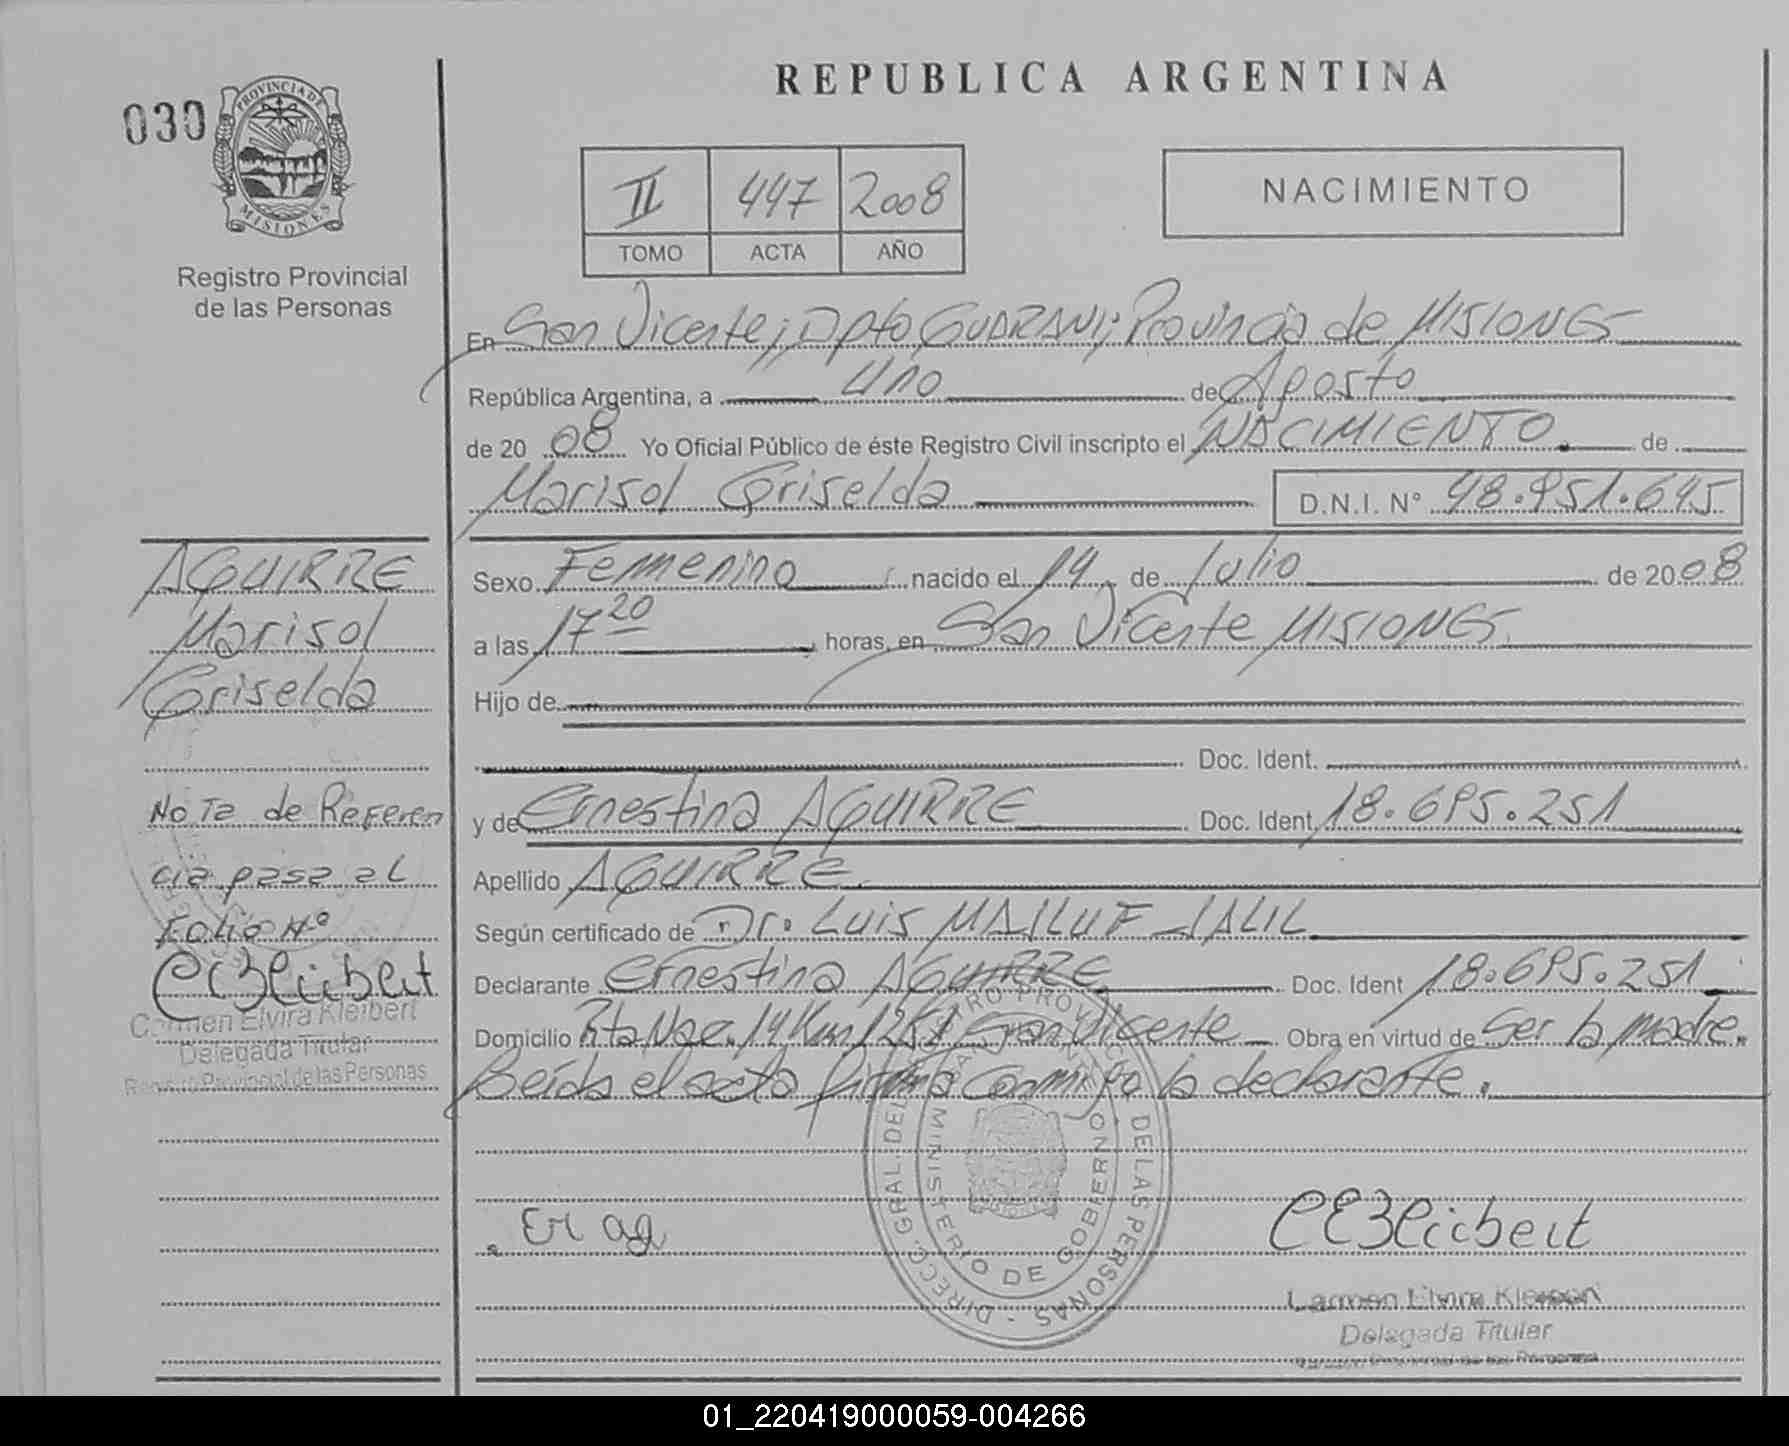 REPUBLICA ARGENTINA
030
PROVINCIA DE
MISIONES
Registro Provincial
de las Personas
II 447 2008
TOMO ACTA AÑO
NACIMIENTO
En San Vicente; Dpto GUARANI; Provincia de MISIONES
República Argentina, a Uno de Agosto
de 2008 Yo Oficial Público de éste Registro Civil inscripto el NACIMIENTO. de
Marisol Griselda D.N.I. N° 48.951.645
Sexo Femenino nacido el 14 de Julio de 2008
a las 17 20 horas, en San Vicente MISIONES.
Hijo de
Doc. Ident.
y de Ernestina AGUIRRE Doc. Ident 18.695.251
Apellido AGUIRRE.
Según certificado de Dr. Luis MAILUF JALIL
Declarante Ernestina AGUIRRE Doc. Ident 18.695.251
Domicilio Rta Nac. 14 Km 1251 San Vicente Obra en virtud de Ser la madre.
Leída el acta firma conmigo la declarante.
AGUIRRE
Marisol
Griselda
Nota de Referen
cia pasa al
Folio N°
CEKleibert
Carmen Elvira Kleibert
Delegada Titular
Registro Provincial de las Personas
Er ag
DIRECC. GRAL. DEL REGISTRO PROVINCIAL DE LAS PERSONAS
MINISTERIO DE GOBIERNO
CEKleibert
Carmen Elvira Kleibert
Delegada Titular
Registro Provincial de las Personas
01_220419000059-004266